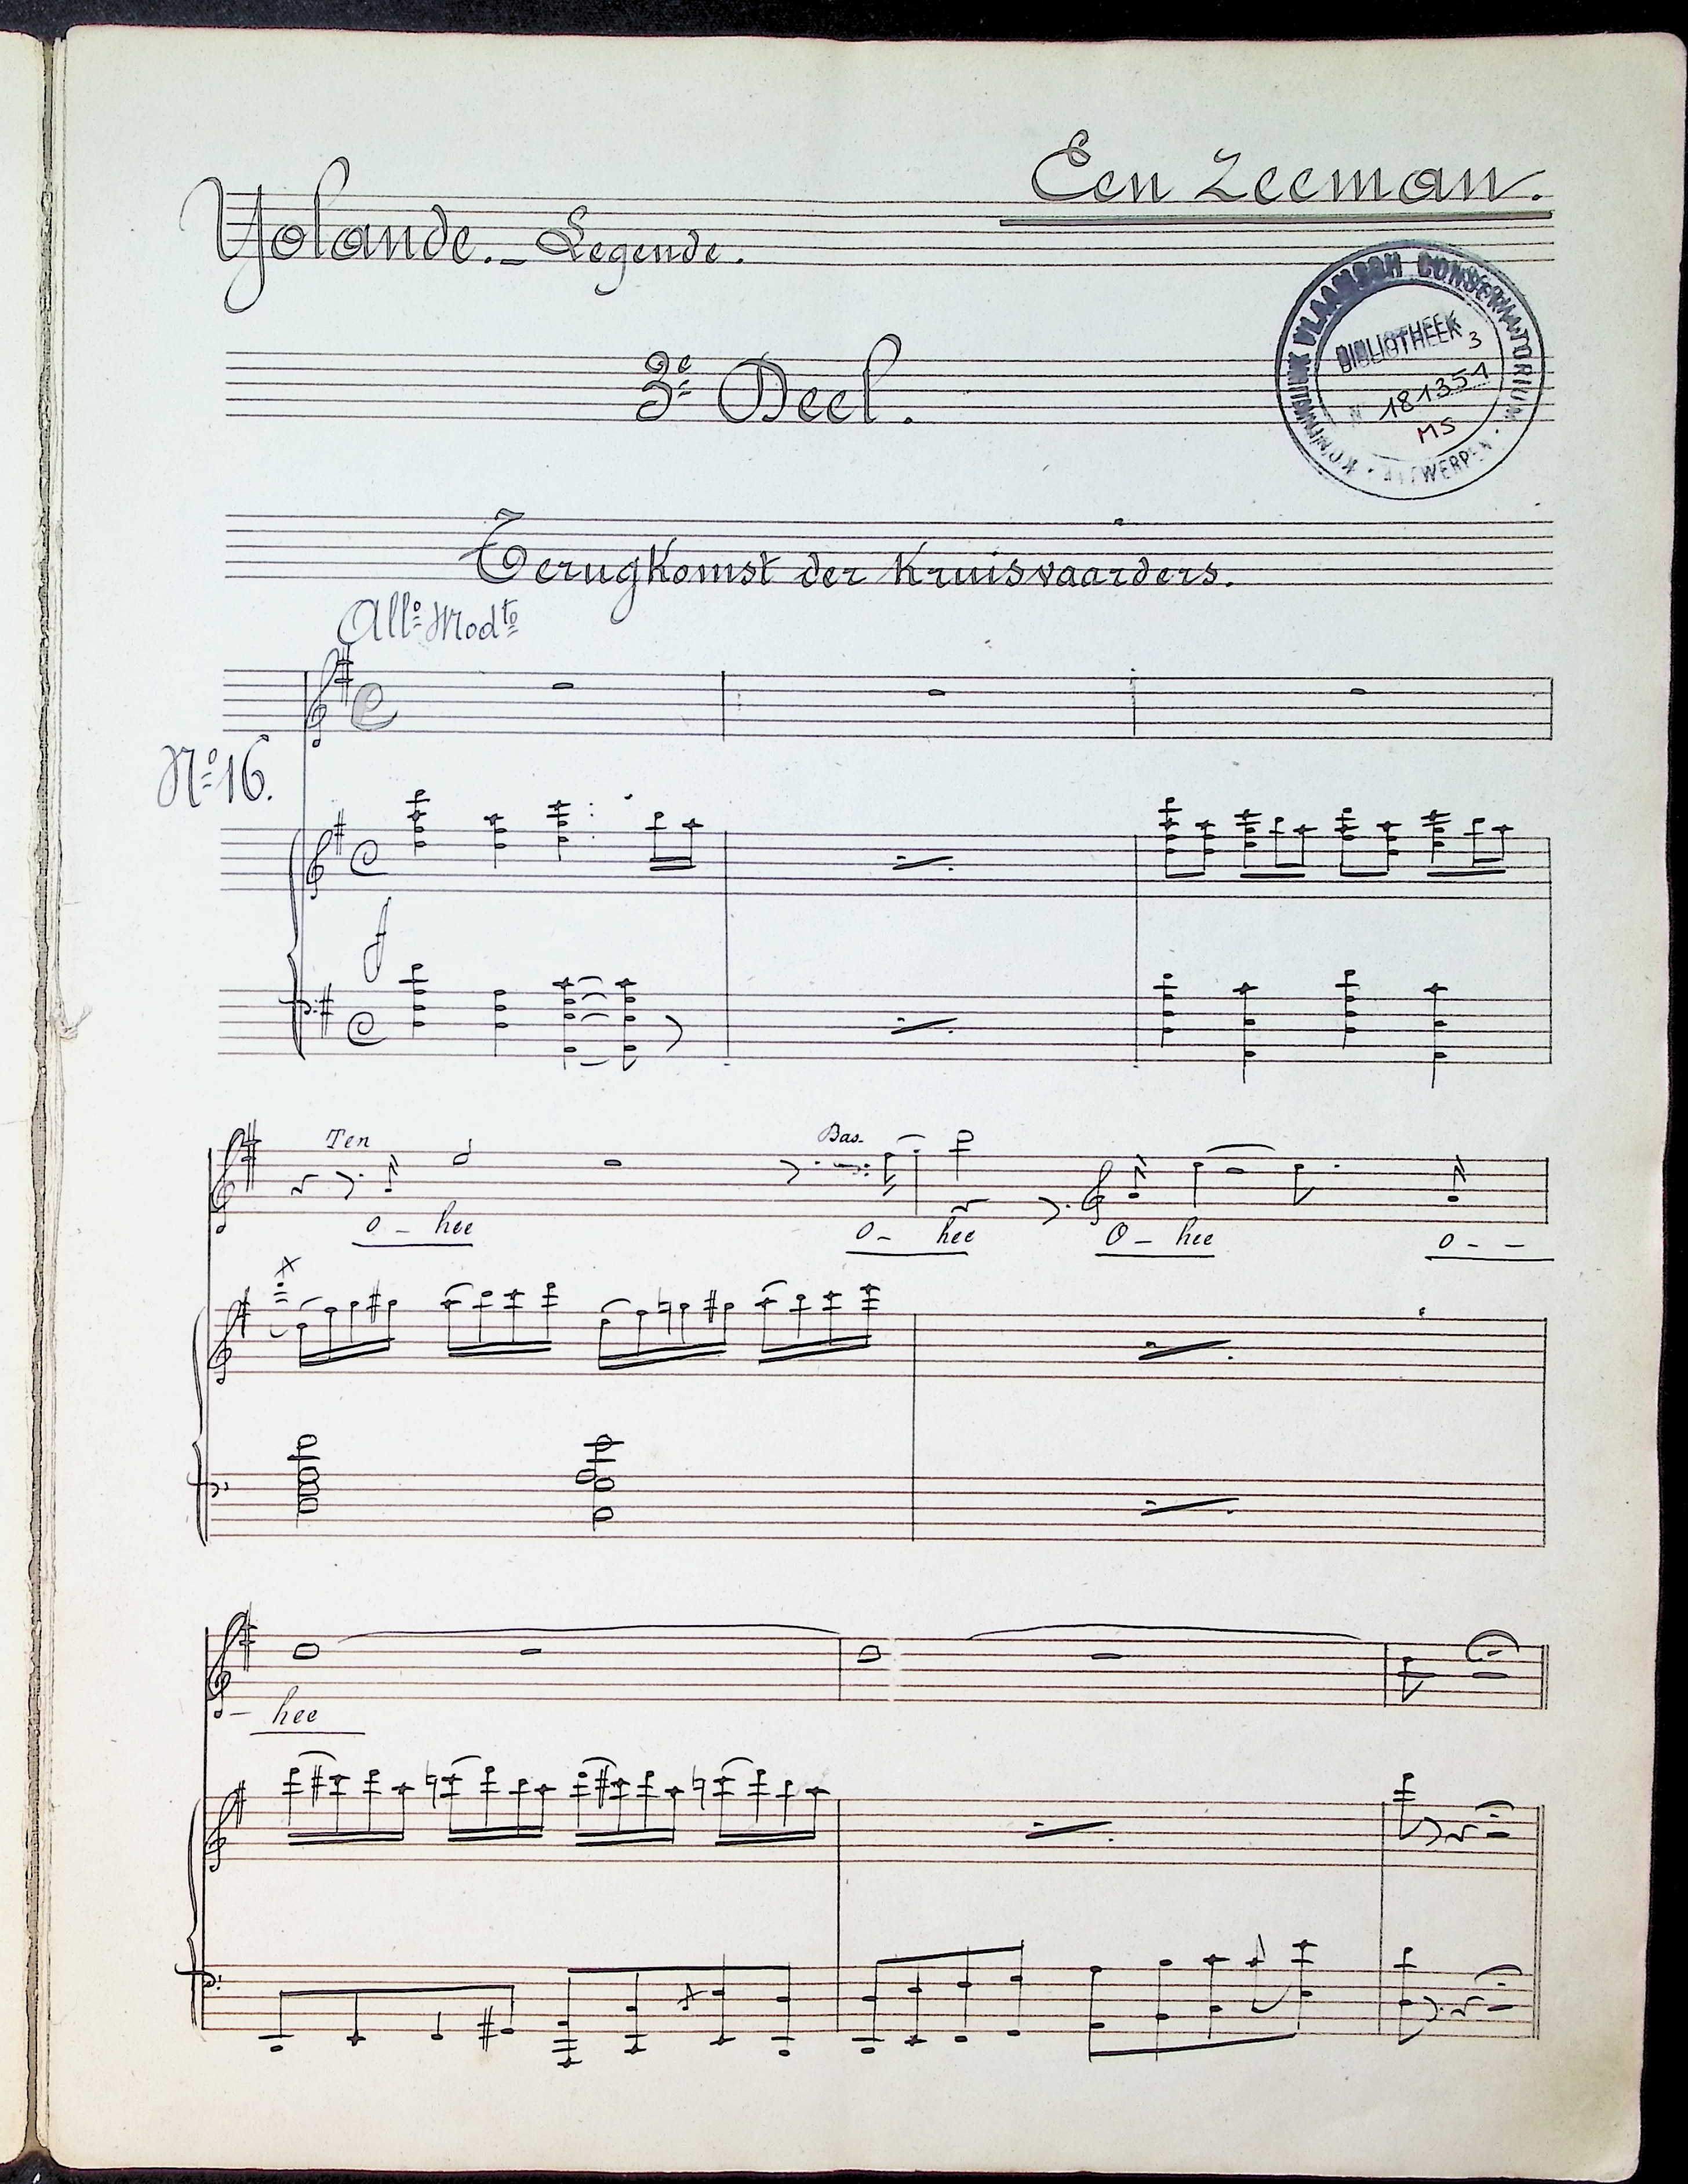 Een Zeeman.
Yolande. - Legende.
KONINKLIJK VLAAMSCH CONSERVATORIUM · ANTWERPEN ·
BIBLIOTHEEK 3
N° 181351
MS
3e Deel.
Terugkomst der Kruisvaarders.
Allo Modto
No 16.
f
Ten Bas.
O - hee O - hee O - hee O - -
- hee